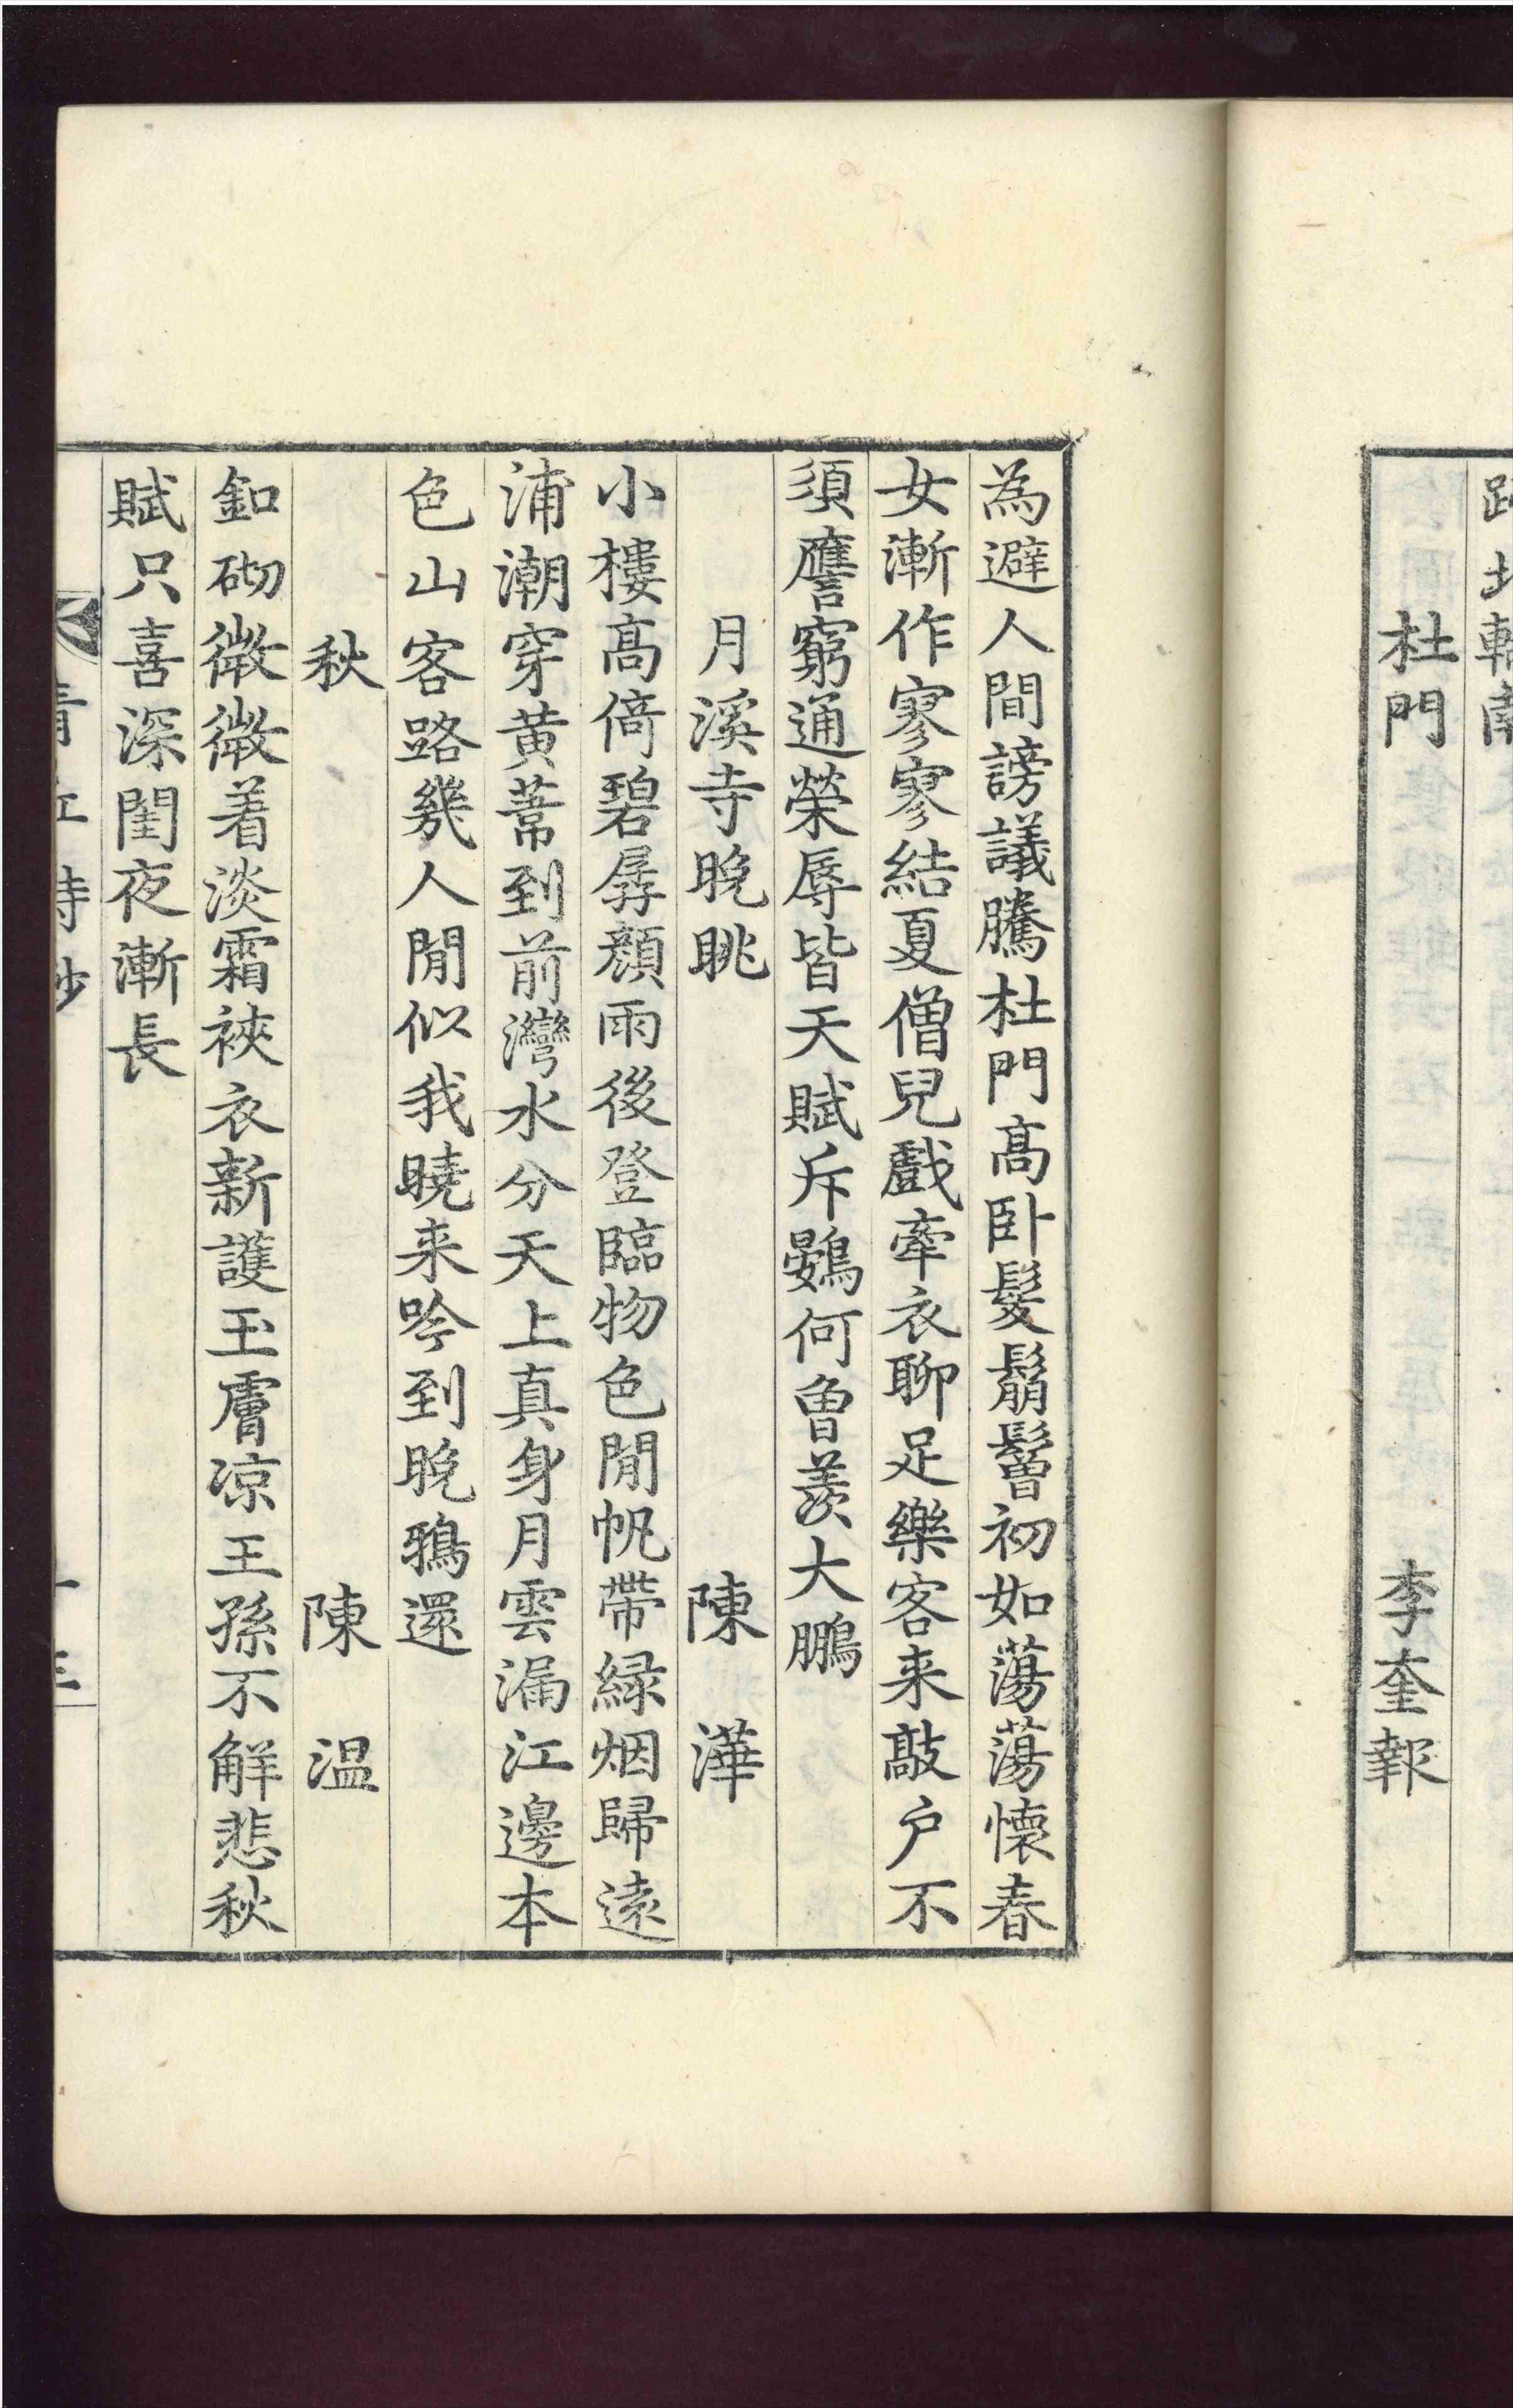 杜門 李奎報
為避人間謗議騰杜門高臥髮鬅鬙初如蕩蕩懷春
女漸作寥寥結夏僧兒戲牽衣聊足樂客来敲戶不
須譍窮通榮辱皆天賦斥鷃何曾羨大鵬
月溪寺晚眺 陳澕
小樓高倚碧孱顏雨後登臨物色閒帆帶緑烟歸遠
浦潮穿黄葦到前灣水分天上真身月雲漏江邊本
色山客路幾人閒似我曉来吟到晚鴉還
秋 陳温
釦砌微微着淡霜裌衣新護玉膚凉王孫不解悲秋
賦只喜深閨夜漸長